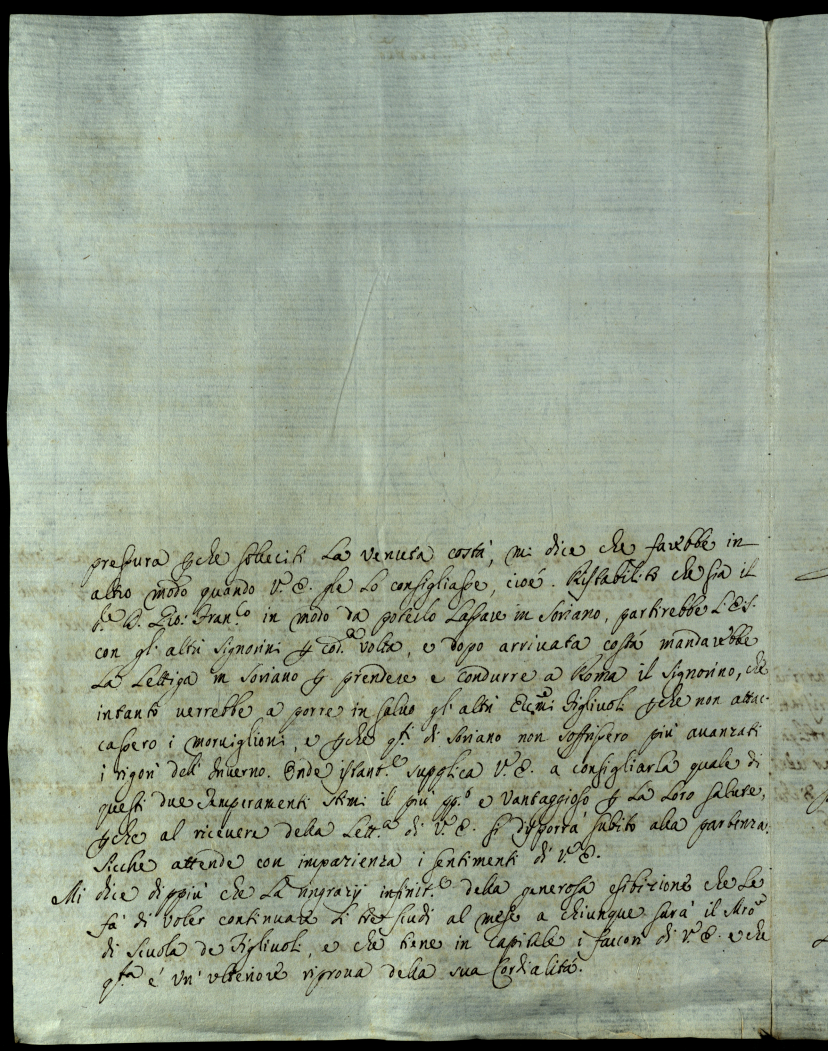 pressura p̱che solleciti la venuta costà, mi dice che farebbe in
altro modo quando V.E. gle lo consigliasse, cioè. Ristabilito che sia il
D. Gio: Fran.co in modo da poterlo lassare in Soriano, partirebbe S.E.S.
con gl'altri Signorini p̱ cod.a volta, e dopo arrivata costà mandarebbe
la lettiga in Soriano p̱ prendere e condurre a Roma il Signorino, che
intanto verrebbe a porre in salvo gl'altri Ecc.mi Figlivoli p̱che non attac-
cassero i morviglioni, e p̱che q.ti di Soriano non soffrissero più avanzati
i rigori dell'Inverno. Onde istant.e supplica V.E. a consigliarla quale di
questi due temperamenti stimi il più pp.o e vantaggioso p̱ la loro salute,
p̱che al ricevere della lett.a di V.E. si disporrà subito alla partenza.
Sicche attende con impazienza i sentimenti di V.E.
Mi dice dippiù che la ringrazij infinit.e della generosa esibizione che le
fà di voler continuare li tre scudi al mese a chiunque sarà il Mro
di Scuola de Figlivoli, e che tiene in Capitale i favori di V.E. e che
q.sta è un'ulteriore riprova della sua Cordialità.